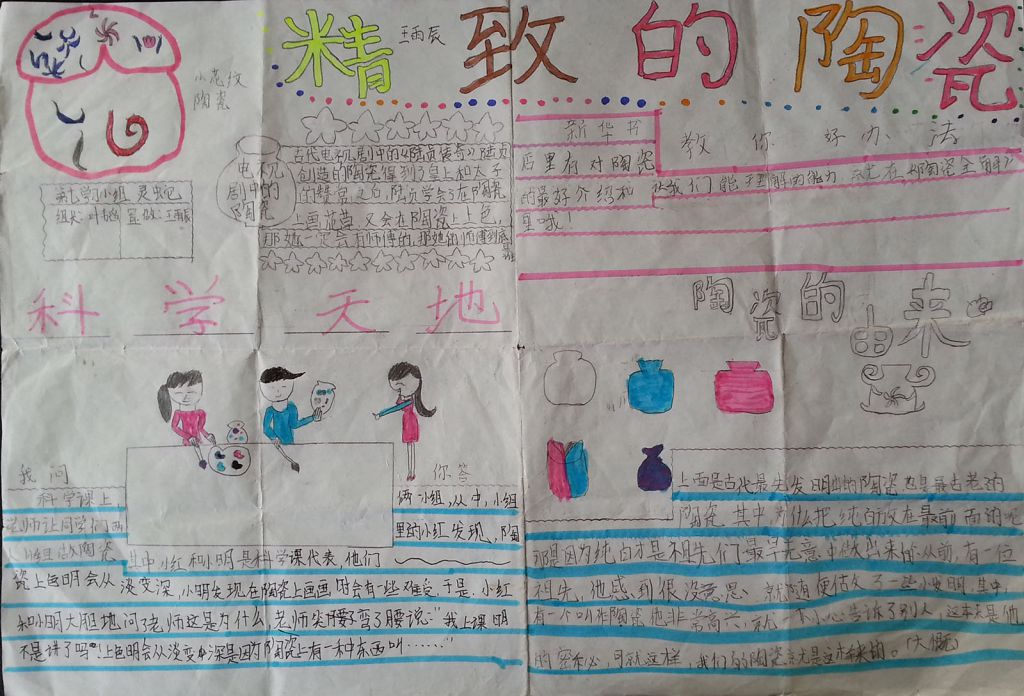 精致的陶瓷
王雨辰
小花纹
陶瓷
电视
剧中的
陶瓷
古代电视剧中的《陆贞传奇》陆贞
创造的陶瓷得到了皇上和太子
的赞赏之后,陆贞学会了在陶瓷
上画花草,又会在陶瓷上上色,
那她一定会有师傅的,那她的师傅到底
新华书
店里有对陶瓷
的最好介绍和
教你好办法
让我们能理解的能力
科学天地
我问
科学课上
老师让同学们两
小组做陶瓷
你答
俩小组,从中,小组
里的小红发现,陶
其中小红和小明是科学课代表,他们
瓷上色明会从淡变深,小明发现在陶瓷上画画时会有一些难受,于是,小红
和小明大胆地问老师这是为什么,老师笑
弯了腰说:“我上课明
不是讲了吗?上色明会从淡变成深是因为陶瓷上有一种东西叫……”
陶瓷的由来
上面是古代最先发明出的陶瓷也是最古老的
陶瓷,其中为什么把纯白放在最前面的呢
那是因为纯白才是祖先们最早无意中做出来的,从前,有一位
祖先,他感到很没意思,就随便估久了一些小发明,其中,
有一个叫作陶瓷他非常高兴,就不小心告诉了别人,这本来是他
的密秘,可就这样,我们的陶瓷就是这样来的。(大概)